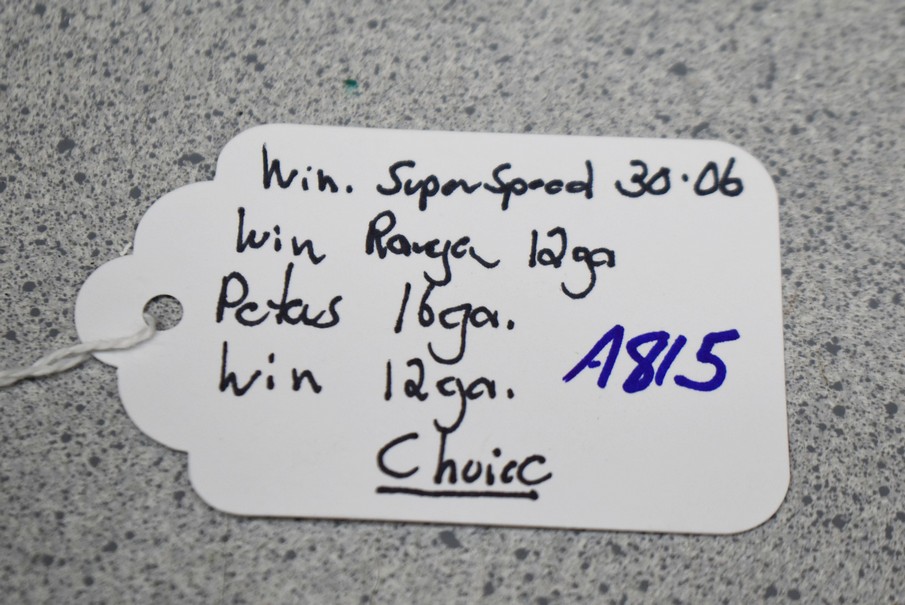 Win. Super Speed 30.06
Win Ranger 12ga
Peters 16ga.
Win 12ga.
A815
Choice